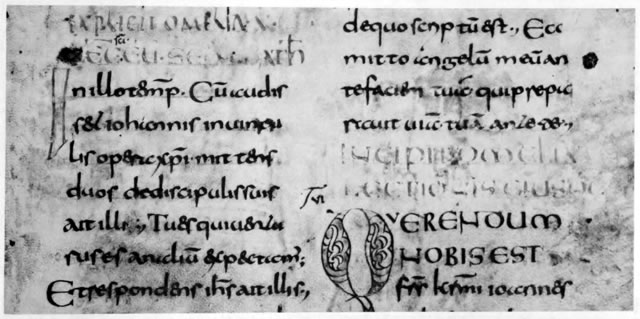 EXPLICIT OMELIA X
sci
LEC EU SCDM MTH
In illo temp̅. Cu̅ audis
set iohannis in uincu
lis opera xp̅i. mittens
duos de discipulis suis
ait illi., Tu es qui uentu
rus es an aliu̅ expectam̅;
Et respondens ih̅s ait illis.,
de quo scriptu̅ est., Ecc
mitto angelu̅ meu̅ an
te faciem tua̅ qui prepa
rauit uia̅ tua̅ ante te.,
INCIPIT OMELIA
LECTIONIS EIUSDE
QUERENDUM
NOBIS EST
fr̅s kr̅mi ioannes